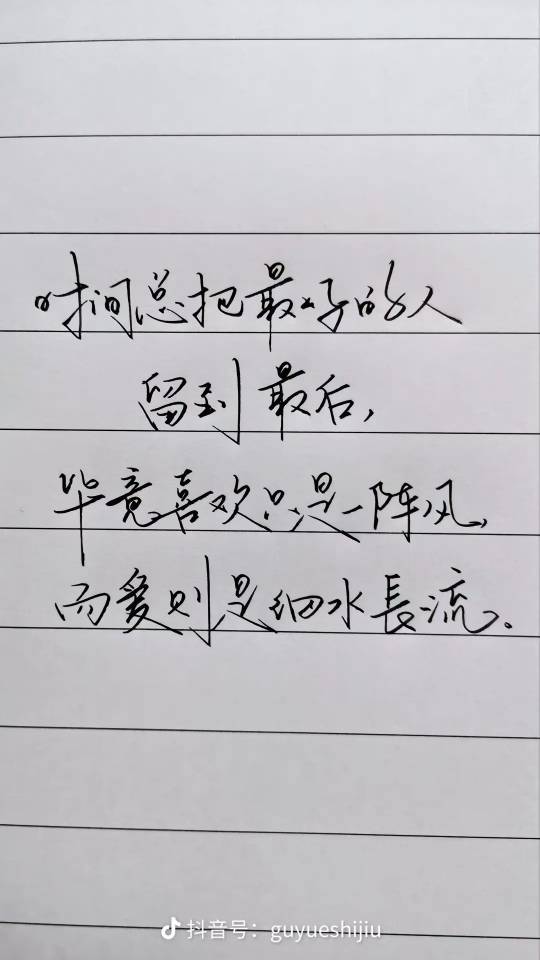 时间总把最好的人
留到最后，
毕竟喜欢只是一阵风，
而爱则是细水長流。
抖音号：guyueshijiu